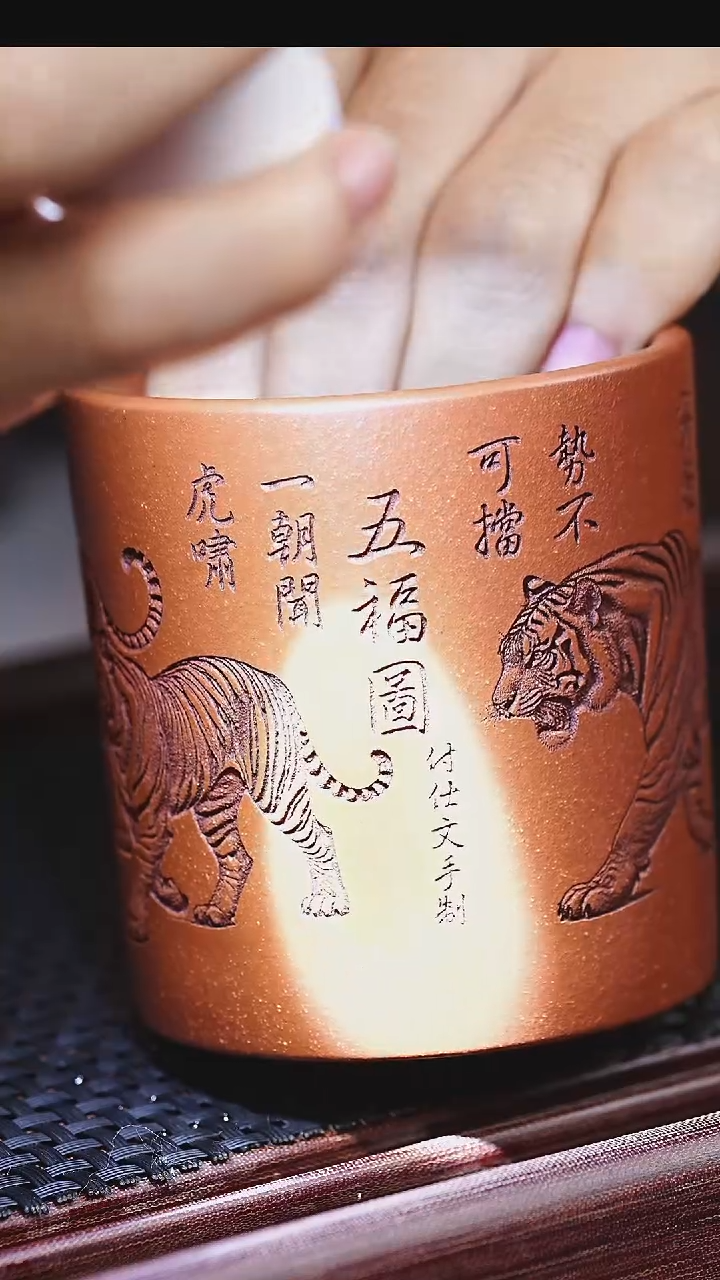 勢不
可擋
五福圖
付仕文手制
一朝聞
虎嘯